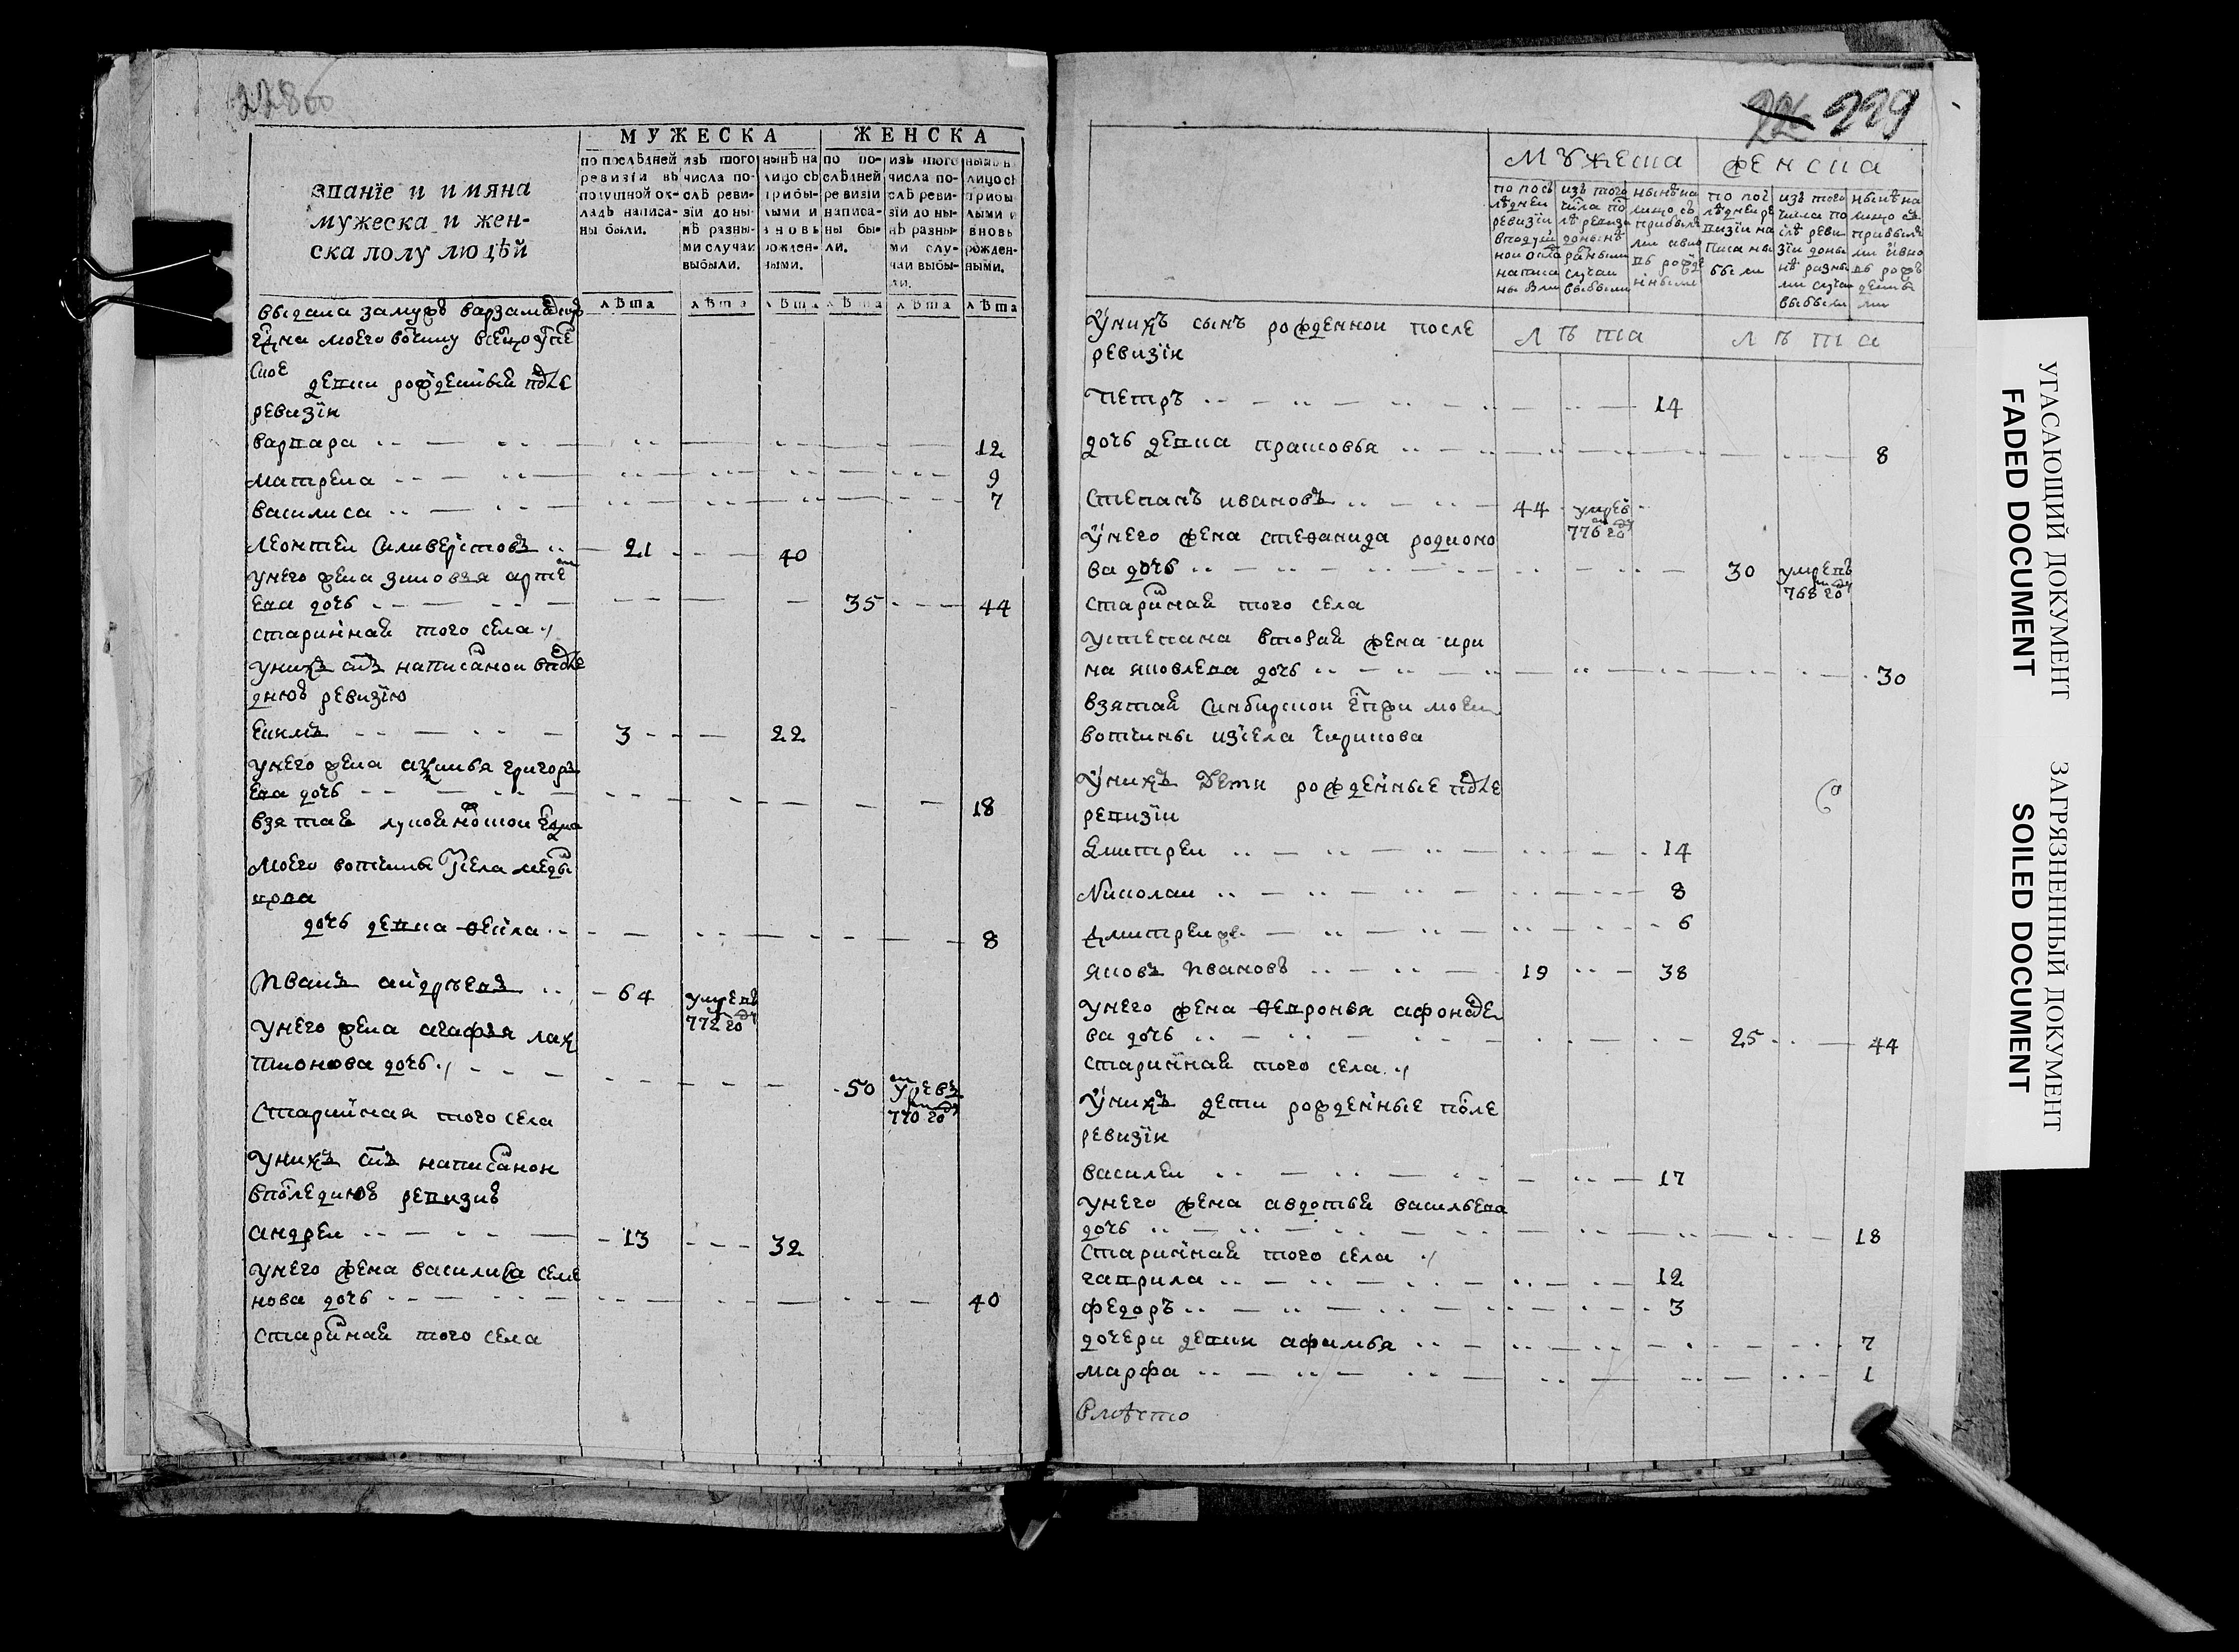 228об
званїе и имяна
мужеска и жен-
ска полу людѣй
МУЖЕСКА
ЖЕНСКА
по послѣдней ревизїи въ подушной окладъ написаны были.
изъ того числа послѣ ревизїи до нынѣ разными случаи выбыли.
нынѣ на лицо съ прибылыми и вновь рожденными.
по послѣдней ревизїи написаны были.
изъ того числа послѣ ревизїи до нынѣ разными случаи выбыли.
нынѣ на лицо съ прибылыми и вновь рожденными.
лѣта лѣта лѣта лѣта лѣта лѣта
выдана замужъ
моего вотчину
дети рожденные после
ревизїи
варвара 12
матрена 9
василиса 7
леонтей силиверстовъ 21 40
унего жена зиновья артемь
ева дочь 35 44
стариннай того села
унихъ сынъ написаной впосле
днюю ревизїю
екимъ 3 22
унего жена акулина григорь
ева дочь 18
взятая
моего вотчины
дочь девка фекла 8
Иванъ андрѣевъ 64 умревъ
772 году
унего жена агафья лах
тионова дочь 50 умревъ
770 году
Стариная того села
унихъ сынъ написаной
впоследнюю ревизию
андреи 13 32
унего жена василиса семе
нова дочь 40
старинай того села
229
Мужеска
женска
по последнеи ревизїи в подушнои окладъ написаны были
изъ того числа после ревизи до нынѣ разными случаи выбыли
нынѣ на лицо съ прибылыми и вновь рожденными
по последнеи ревизїи написаны были
изъ того числа после ревизїи донынѣ разными случаи выбыли
нынѣ на лицо съ прибылыми и вновь рожденными
Лѣта
Лѣта
Унихъ сынъ рожденнои после
ревизїи
Петръ 14
дочь девка прасковья 8
Степанъ ивановъ 44 умревъ
776 году
Унего жена стефанида родионо
ва дочь 30 умревъ
768 году
старинай того села
устепана вторая жена ири
на яковлева дочь 30
взятай синбирской
вотчины изсела
Унихъ Дети рожденные после
ревизїи
Дмитреи 14
Николаи 8
Дмитреи же 6
яковъ Ивановъ 19 38
унего жена февронья афонасье
ва дочь 25 44
стариннай того села
Унихъ дети рожденные после
ревизїи
василеи 17
унего жена авдотья васильева
дочь 18
стариннай того села
гаврила 12
федоръ 3
дочери девки афимья 7
марфа 1
Вмѣсто
УГАСАЮЩИЙ ДОКУМЕНТ
FADED DOCUMENT
ЗАГРЯЗНЕННЫЙ ДОКУМЕНТ
SOILED DOCUMENT